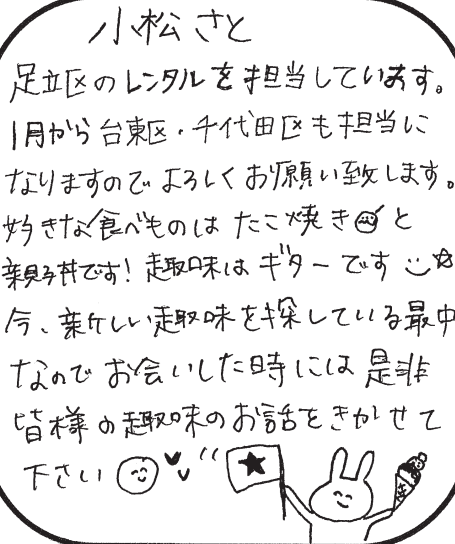 小松さと
足立区のレンタルを担当しています。
1月から台東区・千代田区も担当に
なりますのでよろしくお願い致します。
好きな食べものはたこ焼きと
親子丼です！趣味はギターです
今、新しい趣味を探している最中
なのでお会いした時には是非
皆様の趣味のお話をきかせて
下さい